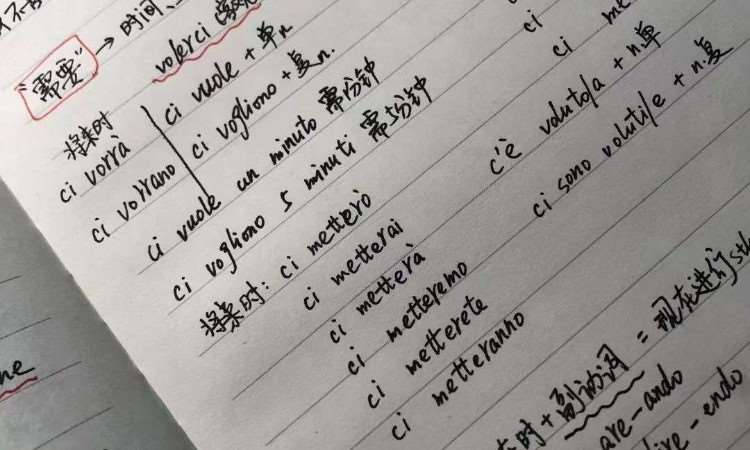 "需要" → 时间
volerci
ci vuole + 单n.
ci vogliono + 复n.
将来时
ci vorrà
ci vorrano
ci vuole un minuto 需1分钟
ci vogliono 5 minuti 需5分钟
将来时: ci metterò
ci metterai
ci metterà
ci metteremo
ci metterete
ci metteranno
ci
ci
c'è voluto/a + n单
ci sono voluti/e + n复
时 + 副动词 = 现在进行
are-ando
ire-endo